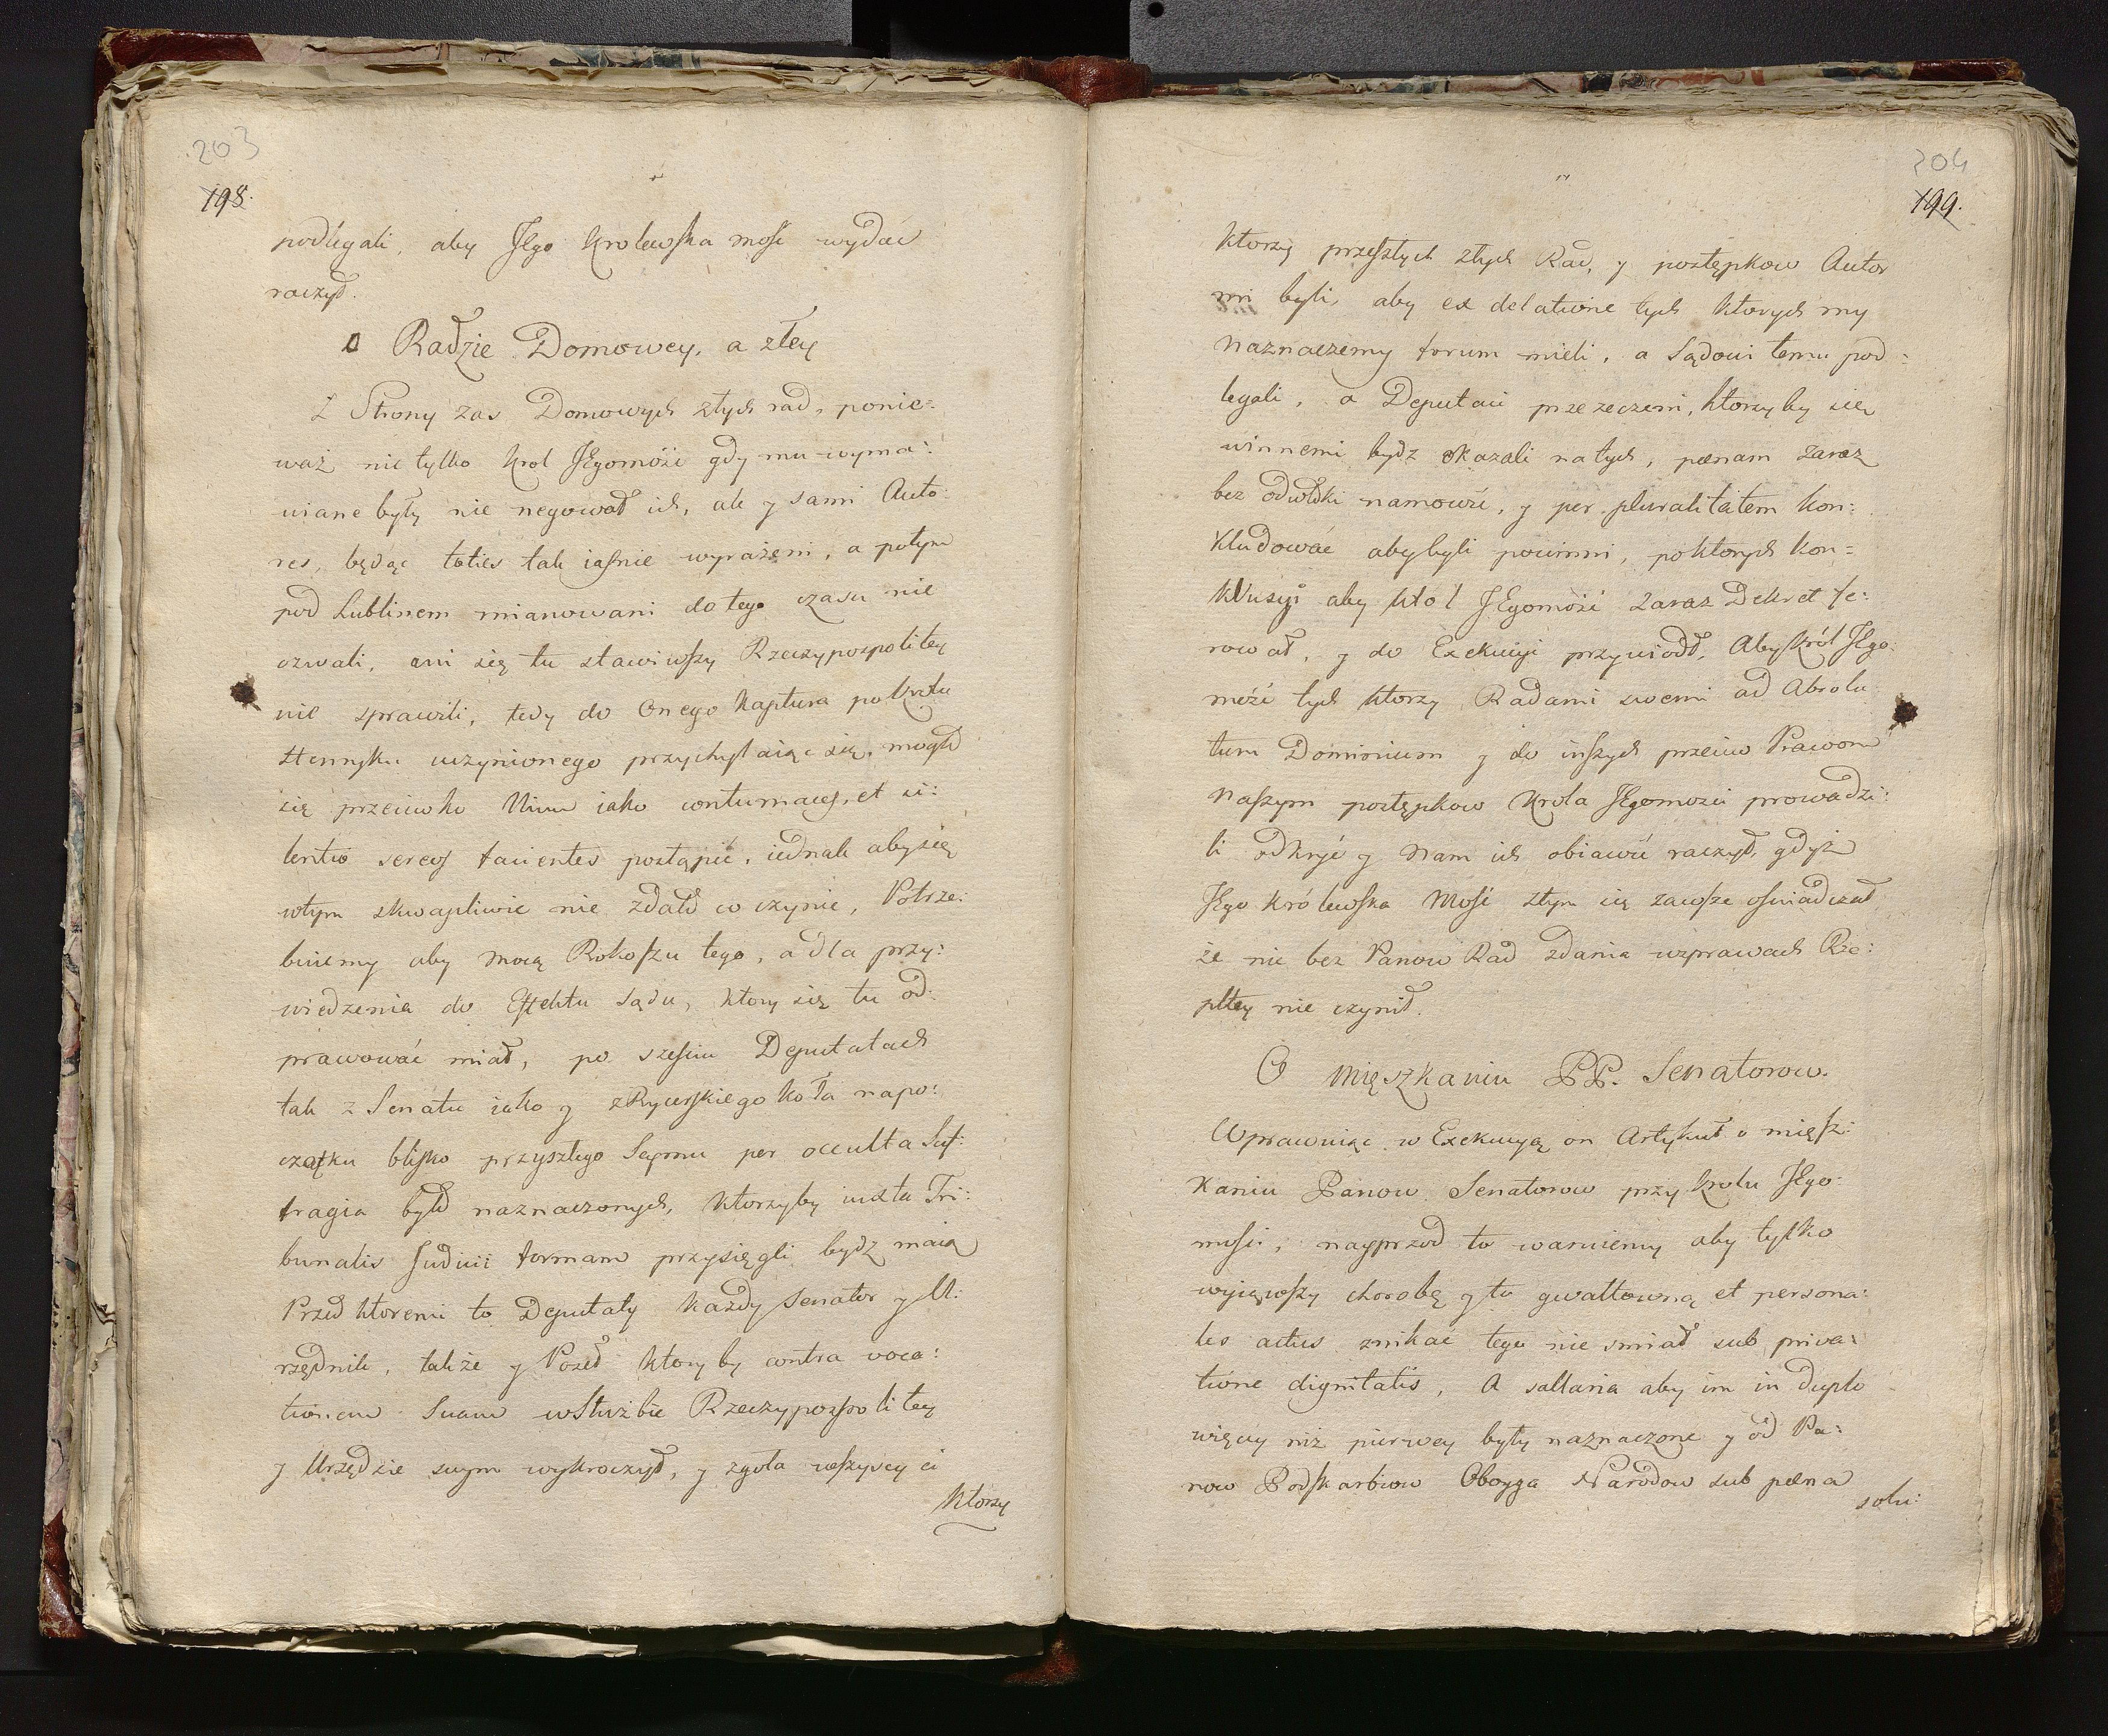 203
198.
podlegali, aby JEgo Krolewska mość wydać
raczył.
O Radzie Domowey, a złey
Z Strony zas Domowych złych rad, ponie=
waż nie tylko Krol JEgomość gdy mu wyma:
wiane były nie negował ich, ale y sami Auto:
res, będąc toties tak iasnie wyrażeni, a potym
pod Lublinem mianowani do tego czasu nie
ozwali, ani się tu stawiwszy Rzeczypospolitey
nie sprawili, tedy do Onego Kaptura po Krolu
Henryku uczynionego przychylaiąc się, mogło
się przeciwko Nim iako contumaces, et si:
lentio sereos facientes postąpić, iednak aby się
wtym skwapliwie nie zdało co czynić, Potrze:
buiemy aby mocą Rokoszu tego, a dla przy:
wiedzenia do Effektu Sądu, ktory się tu od:
prawować miał, po sześciu Deputatach
tak z Senatu iako y z Rycerskiego Koła napo:
czątku blisko przyszłego Seymu per occulta Suf:
fragia było naznaczonych, Ktorzyby iuxta Tri:
bunalis Judicii formam przysięgli bydź maią
Przed ktoremi to Deputaty Każdy Senator y U:
rzędnik, także y Poseł ktory by contra voca:
tionem Suam w Służbie Rzeczypospolitey
y Urzędzie swym wykroczył, y zgoła wszyscy ci
Ktorzy
204
199.
Ktorzy przeszłych złych Rad, y postępkow Autor
mi byli, aby ex delatione tych Ktorych my
naznaczemy forum mieli, a Sądowi temu pod:
legali, a Deputaci przerzeczeni, ktorzy by się
winnemi bydz okazali na tych, pœnam zaraz
bez odwłoki namowić, y per pluralitatem kon:
kludować aby byli powinni, po ktorych kon=
kluzyi aby Kro l JEgomość zaraz Dekret fe:
rował, y do Exekucyi przywiodł, Aby Król JEgo:
mość tych ktorzy Radami swemi ad Absolu
tum Dominium y do inszych przeciw Prawom
Naszym postępkow Krola JEgomosci prowadzi:
li odkryć y Nam ich obiawić raczył, gdyż
JEgo Królewska Mość złym się zawsze oświadczał
że nic bez Panow Rad zdania w sprawach Rze:
pltey nie czynił.
O Mięszkaniu PP. Senatorow.
Wprawuiąc w Exekucyą on Artykuł o mięsz:
Kaniu Panow Senatorow przy Krolu JEgo:
mości, nayprzod to waruiemy aby tylko
wyiąwszy chorobę y to gwałtowną et persona:
les actus znikać tego nie smiał sub priva:
tione dignitatis, A sallaria aby im in duplo
więcey niż pierwey były naznaczone y od Pa:
now Podskarbiow Oboyga Narodow sub pœna
solu: